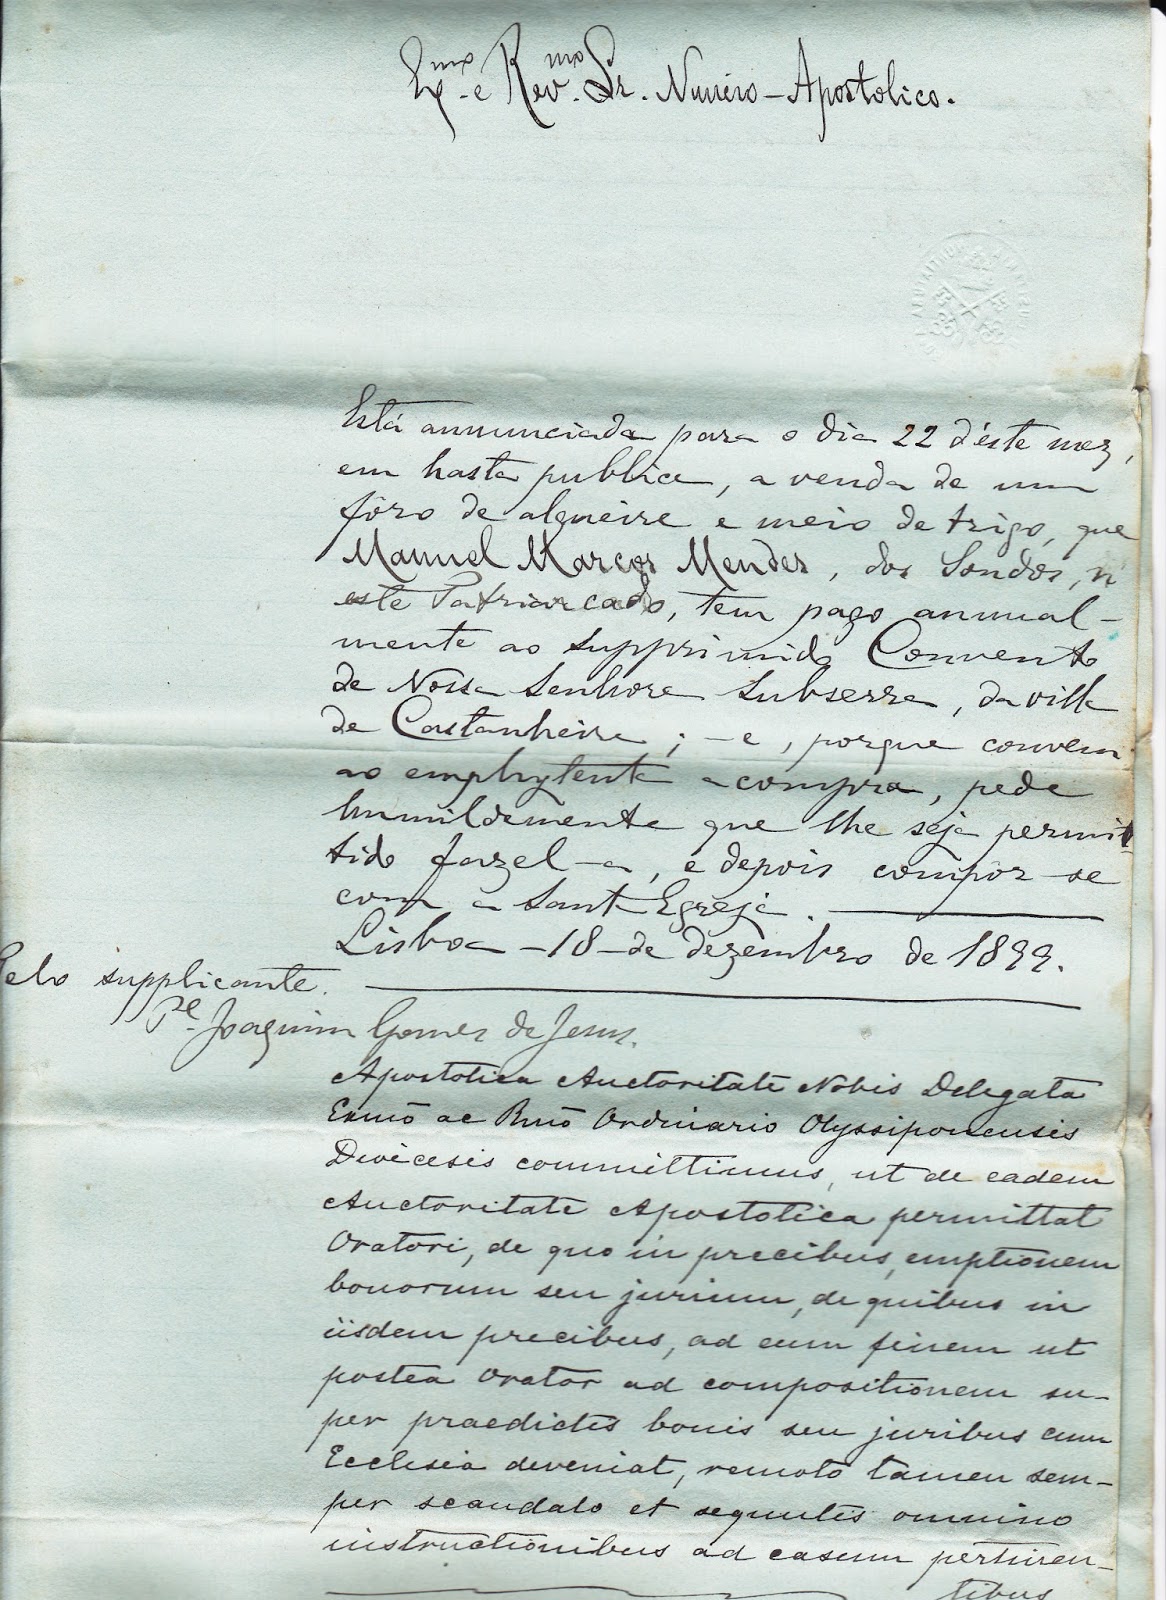 Exmo. e Revmo. Sr. Nuncio-Apostolico.
Está annunciada para o dia 22 d'éste mez,
em hasta publica, a venda de um
fôro de alqueire e meio de trigo, que
Manuel Marcos Mendes, dos Londos, n'
este Patriarcado, tem pago annual-
mente ao supprimido Convento
de Nossa Senhora Subserra, da villa
de Castanheira; - e, porque convem
ao emphyteuta a compra, pede
humildemente que lhe seja permit-
tido fazel-a, e depois compôr-se
com a Santa Egreja.
Lisboa - 18 - de dezembro de 1899.
Pelo supplicante.
Pe. Joaquim Gomes de Jesus.
Apostolica Auctoritate Nobis Delegata
Exmo ac Rmo Ordinario Olyssiponensis
Diœcesis committimus, ut de eadem
Auctoritate Apostolica permittat
Oratori, de quo in precibus, emptionem
bonorum seu jurium, de quibus in
iisdem precibus, ad eum finem ut
postea Orator ad compositionem su-
per praedictis bonis seu juribus cum
Ecclesia deveniat, remoto tamen sem-
per scandalo et sequutis omnino
instructionibus ad casum pertinen-
tibus